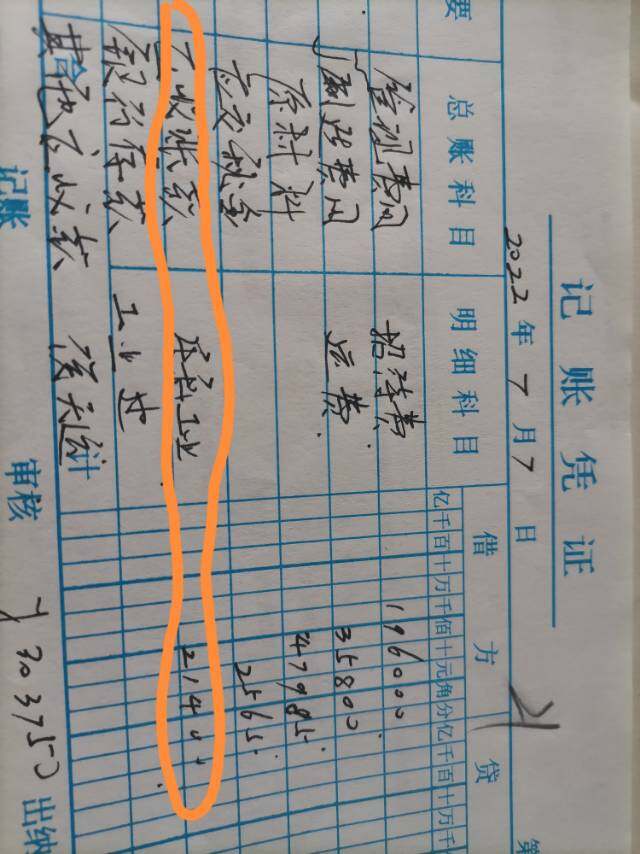 记账凭证
2022年7月7日
第
要 总账科目 明细科目 借方 贷
亿千百十万千佰十元角分亿千百十万千
管理费用 招待费 196000
制造费用 运费 35800
原材料 47985
应交税金 2565
应收账款 工业 21400
银行存款 工业
其他应收款
记账 审核 303750 出纳